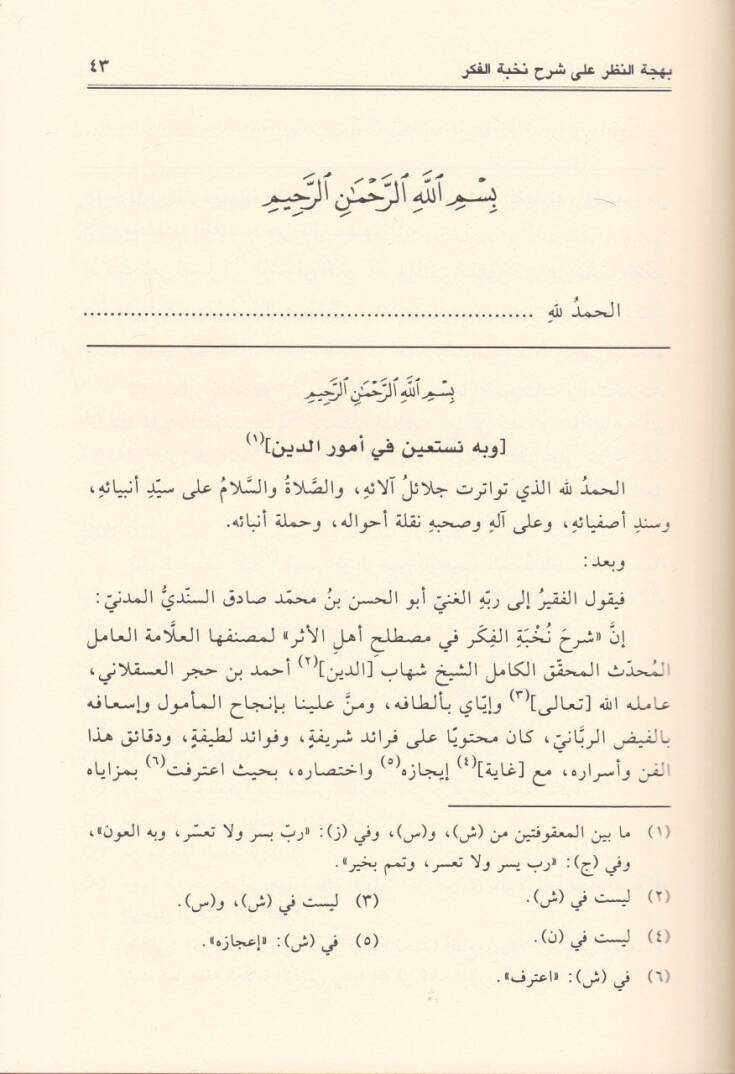 بهجة النظر على شرح نخبة الفكر ٤٣
بِسْمِ ٱللَّهِ ٱلرَّحْمَٰنِ ٱلرَّحِيمِ
الحمدُ للهِ ......................................................................
بِسْمِ ٱللَّهِ ٱلرَّحْمَٰنِ ٱلرَّحِيمِ
[وبه نستعين في أمور الدين](١)
الحمدُ لله الذي تواترت جلائلُ آلائهِ، والصَّلاةُ والسَّلامُ على سيّدِ أنبيائهِ،
وسندِ أصفيائهِ، وعلى آلهِ وصحبهِ نقلة أحواله، وحملة أنبائه.
وبعد:
فيقول الفقيرُ إلى ربّهِ الغنيّ أبو الحسن بنُ محمّد صادق السنّديُّ المدنيّ:
إنَّ «شرحَ نُخْبَةِ الفِكَر في مصطلحِ أهلِ الأثر» لمصنفها العلَّامة العامل
المُحدّث المحقّق الكامل الشيخ شهاب [الدين](٢) أحمد بن حجر العسقلاني،
عامله الله [تعالى](٣) وإيّاي بألطافه، ومنَّ علينا بإنجاح المأمول وإسعافه
بالفيض الربَّانيّ، كان محتويًا على فرائد شريفةٍ، وفوائد لطيفةٍ، ودقائق هذا
الفن وأسراره، مع [غاية](٤) إيجازه(٥) واختصاره، بحيث اعترفت(٦) بمزاياه
(١) ما بين المعقوفتين من (ش)، و(س)، وفي (ز): «ربّ يسر ولا تعسّر، وبه العون»،
وفي (ج): «رب يسر ولا تعسر، وتمم بخير».
(٢) ليست في (ش). (٣) ليست في (ش)، و(س).
(٤) ليست في (ن). (٥) في (ش): «إعجازه».
(٦) في (ش): «اعترف».